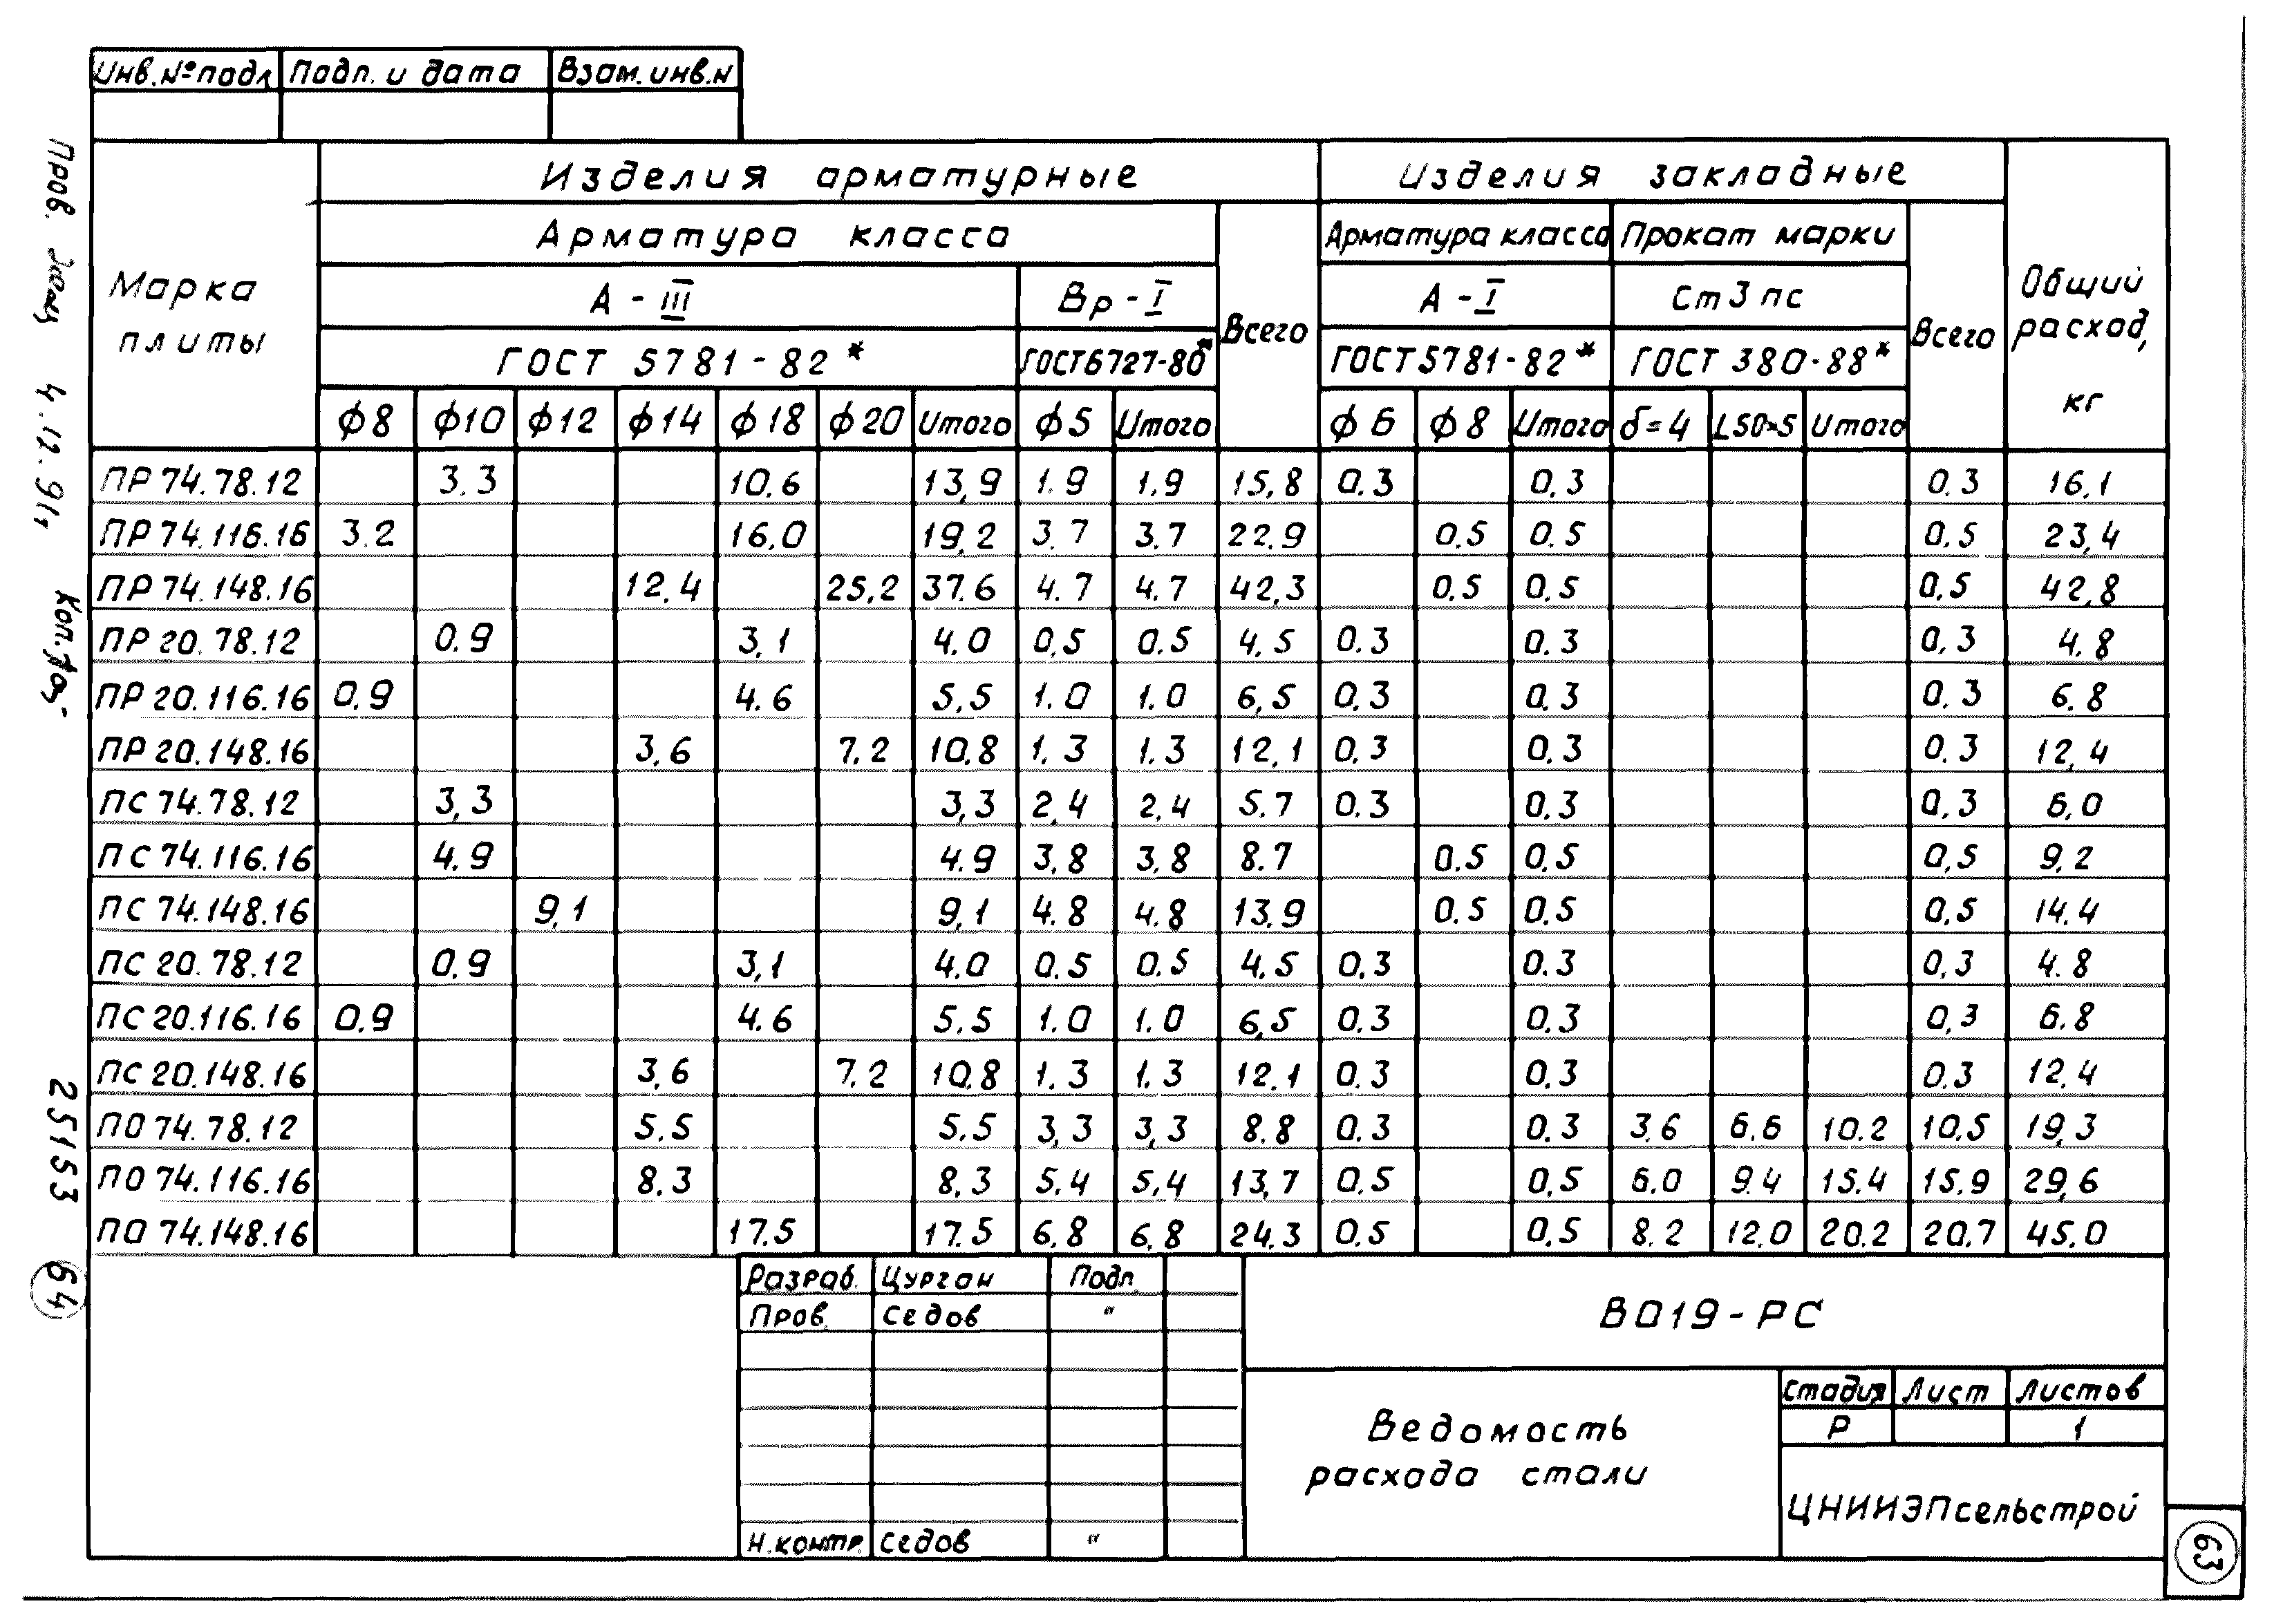 Инв.№подл Подп. и дата Взам.инв.N
Марка плиты
Изделия арматурные
Изделия закладные
Общий расход, кг
Арматура класса
Всего
Арматура класса
Прокат марки
Всего
А-III
Вр-I
А-I
Ст3пс
ГОСТ 5781-82*
ГОСТ6727-80*
ГОСТ5781-82*
ГОСТ 380-88*
ф8 ф10 ф12 ф14 ф18 ф20 Итого ф5 Итого ф6 ф8 Итого δ=4 L50×5 Итого
ПР74.78.12 3.3 10.6 13,9 1.9 1,9 15,8 0.3 0.3 0.3 16,1
ПР74.116.16 3.2 16,0 19,2 3,7 3.7 22.9 0.5 0.5 0.5 23,4
ПР74.148.16 12.4 25,2 37.6 4.7 4.7 42,3 0.5 0.5 0,5 42,8
ПР20.78.12 0.9 3,1 4.0 0,5 0.5 4,5 0.3 0.3 0,3 4.8
ПР20.116.16 0.9 4.6 5,5 1.0 1.0 6,5 0.3 0.3 0.3 6.8
ПР20.148.16 3,6 7.2 10,8 1,3 1.3 12,1 0.3 0.3 0.3 12,4
ПС74.78.12 3,3 3,3 2,4 2,4 5.7 0.3 0.3 0,3 6,0
ПС74.116.16 4.9 4.9 3,8 3,8 8.7 0.5 0,5 0,5 9,2
ПС74.148.16 9,1 9,1 4.8 4.8 13,9 0.5 0.5 0,5 14.4
ПС20.78.12 0,9 3,1 4.0 0.5 0.5 4,5 0.3 0.3 0,3 4.8
ПС20.116.16 0,9 4.6 5.5 1.0 1.0 6,5 0.3 0.3 0,3 6.8
ПС20.148.16 3,6 7.2 10,8 1.3 1.3 12.1 0.3 0.3 0.3 12,4
ПО74.78.12 5.5 5,5 3,3 3,3 8.8 0.3 0.3 3,6 6.6 10.2 10,5 19,3
ПО74.116.16 8.3 8,3 5,4 5,4 13,7 0.5 0,5 6,0 9.4 15.4 15,9 29,6
ПО74.148.16 17.5 17.5 6,8 6,8 24,3 0.5 0.5 8.2 12.0 20.2 20,7 45,0
Разраб. Цурган Подп.
Пров. Седов "
Н.контр. Седов "
В019-РС
Ведомость
расхода стали
Стадия Лист Листов
Р 1
ЦНИИЭПсельстрой
63
Пров. 4.12.91г Коп.
25153 64